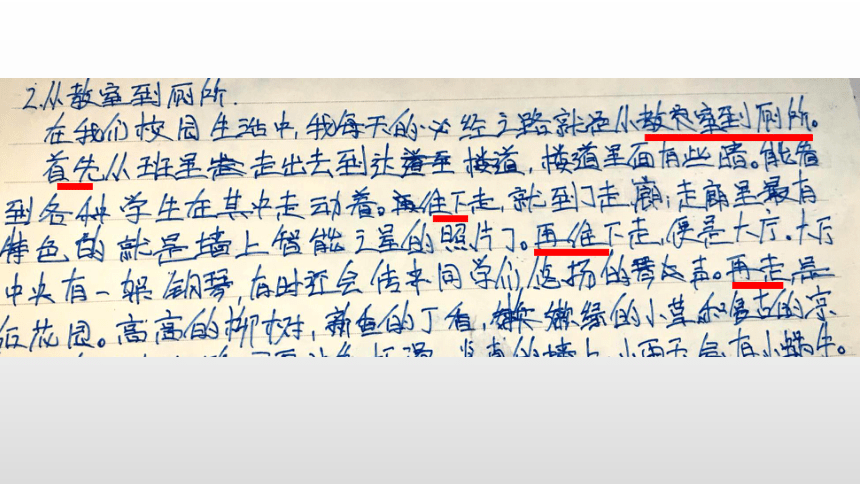 2.从教室到厕所.
在我们校园生活中,我每天的必经之路就是从教室到厕所。
首先从班里走出去到达楼道,楼道里面有些暗。能看
到各种学生在其中走动着。再往下走,就到了走廊;走廊里最有
特色的就是墙上智能之星的照片了。再往下走,便是大厅.大厅
中央有一架钢琴,有时还会传来同学们悠扬的琴声。再走,是
后花园。高高的柳树,新鱼的丁香,嫩绿的小草和复古的凉
的墙上,小雨天气,有小蜗牛。